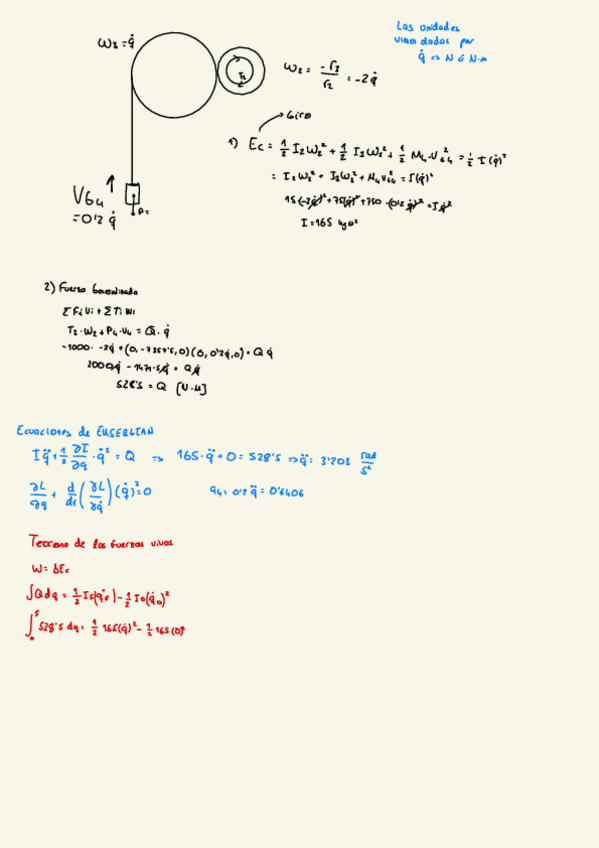 Las unidades
vienen dadas por
q̇ => N ó N·m
ω₃ = q̇
r₂
ω₂ = -r₃/r₂ = -2q̇
Giro
1) Ec = 1/2 I₂ω₂² + 1/2 I₃ω₃² + 1/2 M₄·V_G4² = 1/2 I(q̇)²
= I₂ω₂² + I₃ω₃² + M₄V_G4² = I(q̇)²
15(-2q̇)² + 75(q̇)² + 750·(0'2q̇)² = I q̇²
I = 165 kg m²
V_G4 ↑
= 0'2 q̇
P₄
2) Fuerza Generalizada
ΣFᵢVᵢ + ΣTᵢWᵢ
T₂·ω₂ + P₄·V₄ = Q·q̇
-1000·-2q̇ + (0,-7357'5,0)(0,0'2q̇,0) = Q q̇
2000q̇ - 1471'5q̇ = Qq̇
528'5 = Q [N·M]
Ecuaciones de EKSERGIAN
I q̈ + 1/2 ∂I/∂q · q̇² = Q => 165·q̈ + 0 = 528'5 => q̈ = 3'203 rad/s²
∂L/∂q + d/dt (∂L/∂q̇)(q̇)² = 0 a₄ = 0'2 q̈ = 0'6406
Teorema de las fuerzas vivas
W = ΔEc
∫Q dq = 1/2 I_f(q̇_f)² - 1/2 I₀(q̇₀)²
∫₀⁵ 528'5 dq = 1/2 165(q̇)² - 1/2 165(0)²